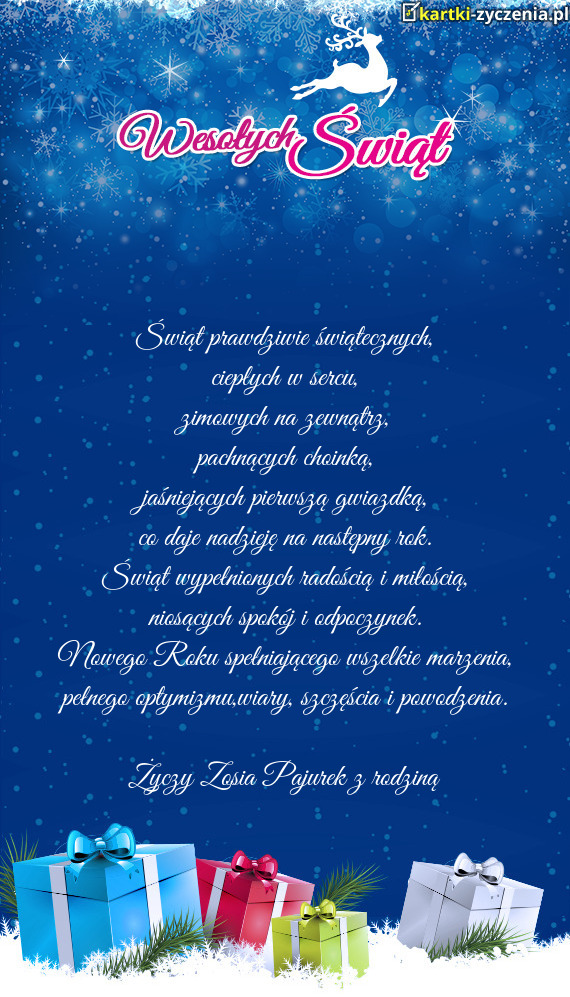 kartki-zyczenia.pl
Wesołych Świąt
Świąt prawdziwie świątecznych,
ciepłych w sercu,
zimowych na zewnątrz,
pachnących choinką,
jaśniejących pierwszą gwiazdką,
co daje nadzieję na następny rok.
Świąt wypełnionych radością i miłością,
niosących spokój i odpoczynek.
Nowego Roku spełniającego wszelkie marzenia,
pełnego optymizmu,wiary, szczęścia i powodzenia.
Życzy Zosia Pajurek z rodziną